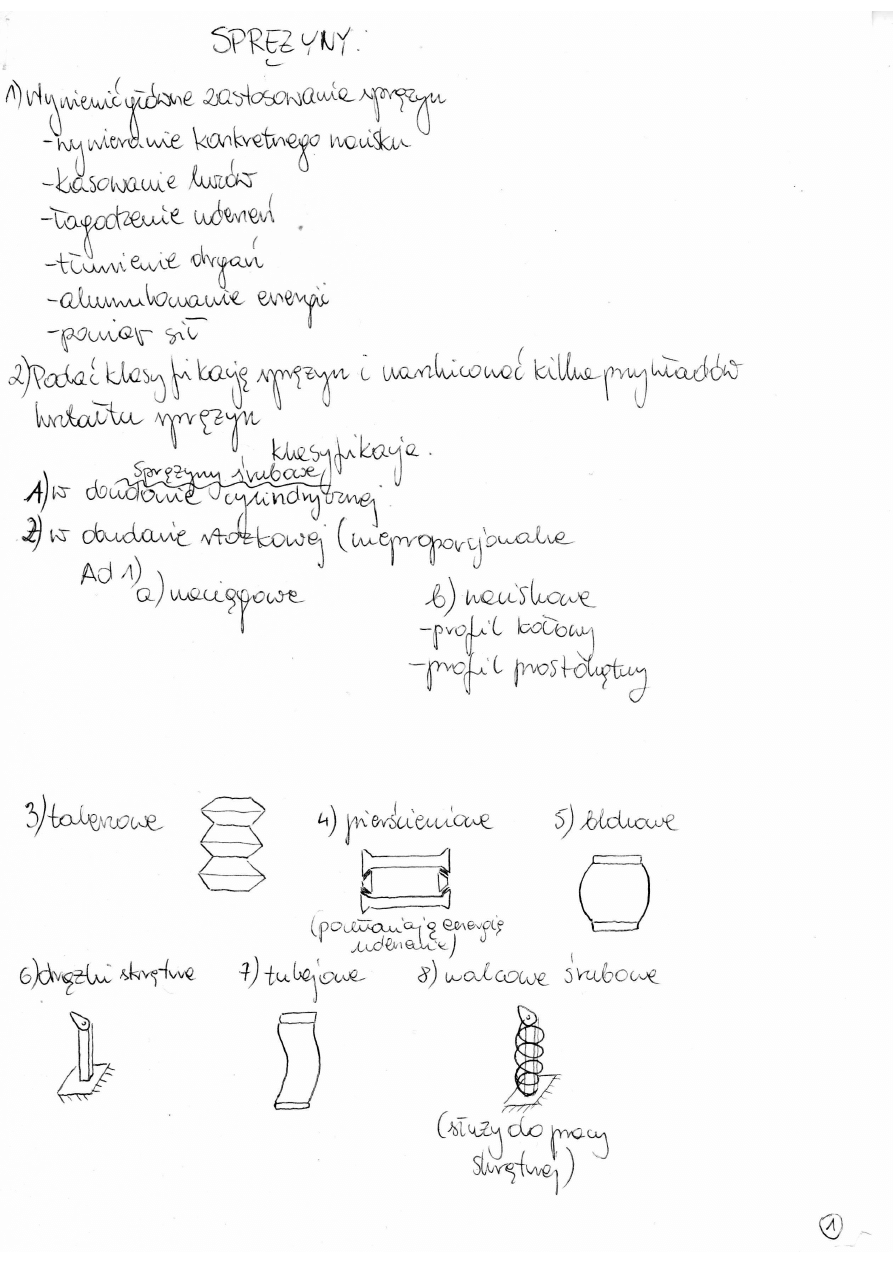 SPRĘŻYNY:
1) Wymienić główne zastosowania sprężyn
-wywieranie konkretnego nacisku
-kasowanie luzów
-łagodzenie uderzeń
-tłumienie drgań
-akumulowanie energii
-pomiar sił
2) Podać klasyfikację sprężyn i naszkicować kilka przykładów
kształtu sprężyn
klasyfikacja.
Sprężyny śrubowe
1) w obudowie cylindrycznej
2) w obudowie stożkowej (nieproporcjonalne
Ad 1)
a) naciągowe
b) naciskowe
-profil kołowy
-profil prostokątny
3) talerzowe
4) pierścieniowe
5) blokowe
(pochłaniają energię
uderzenia)
6) drążki skrętne
7) tulejowe
8) walcowe śrubowe
(służy do pracy
skrętnej)
1